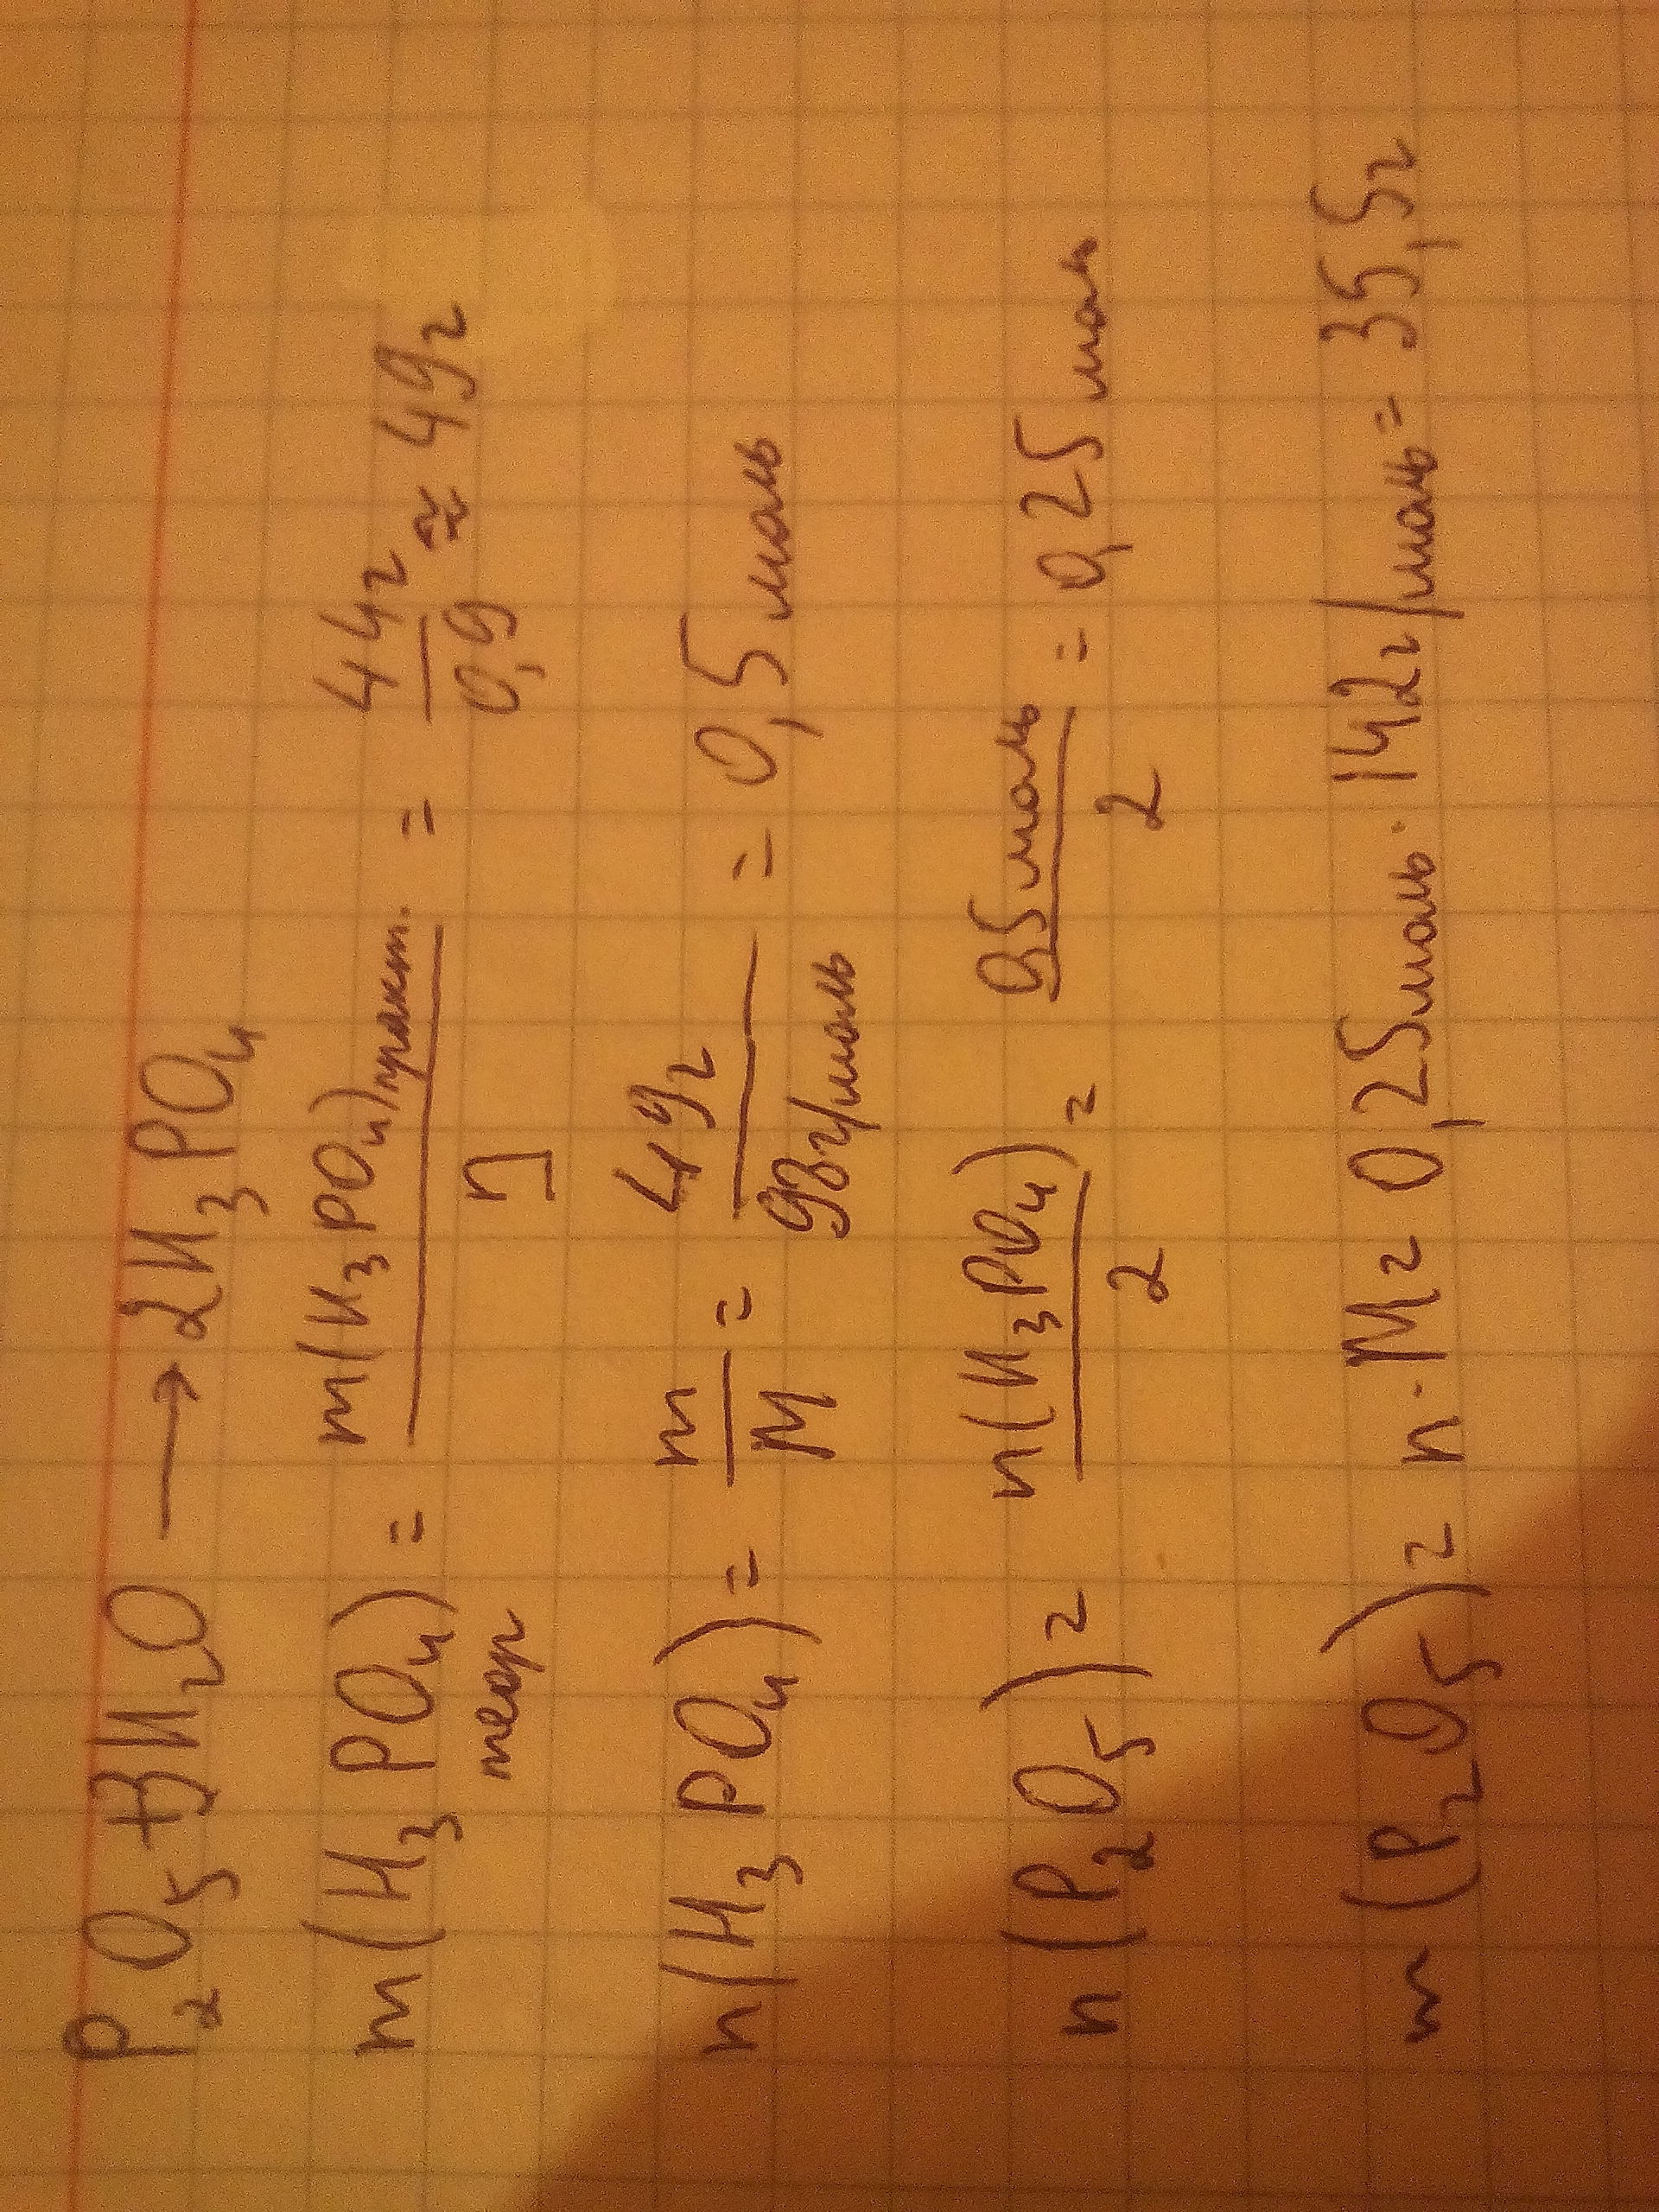 P₂O₅ + 3H₂O → 2H₃PO₄
m(H₃PO₄)теор = m(H₃PO₄)практ. / η = 44г / 0,9 ≈ 49г
n(H₃PO₄) = m / M = 49г / 98г/моль = 0,5 моль
n(P₂O₅) = n(H₃PO₄) / 2 = 0,5 моль / 2 = 0,25 моль
m(P₂O₅) = n · M = 0,25 моль · 142г/моль = 35,5г